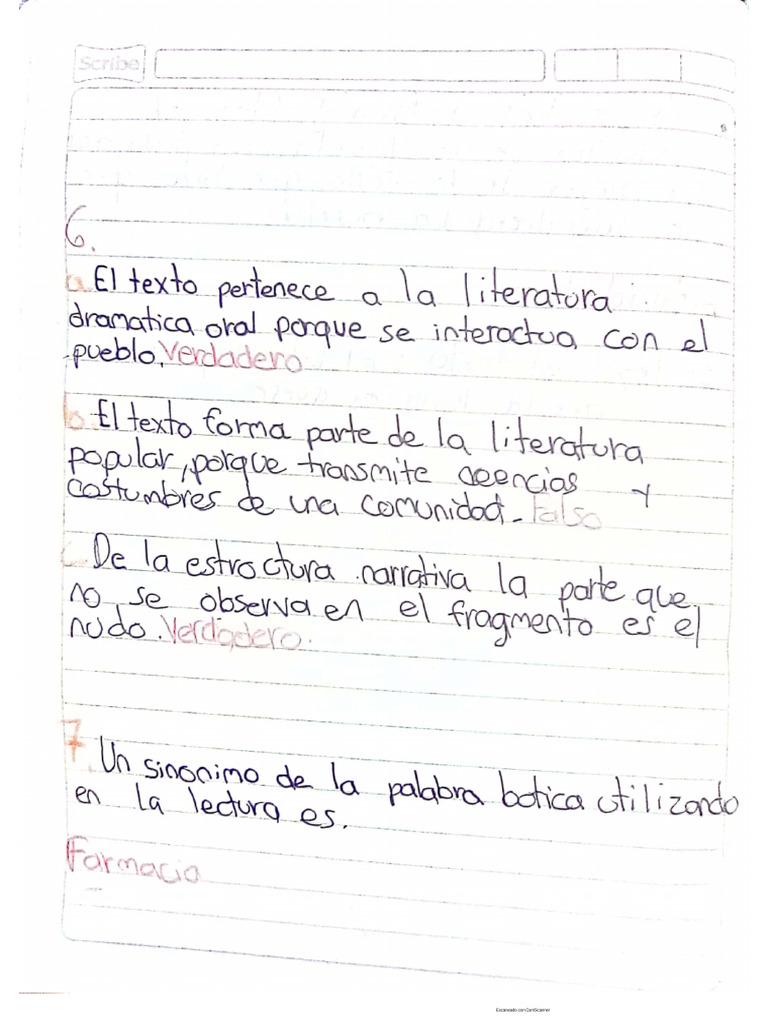 Scribe
6.
a. El texto pertenece a la literatura
dramatica oral porque se interactua con el
pueblo. Verdadero
b. El texto forma parte de la literatura
popular, porque transmite creencias y
costumbres de una comunidad. Falso
c. De la estroctura narrativa la parte que
no se observa en el fragmento es el
nudo. Verdadero.
7. Un sinonimo de la palabra botica utilizando
en la lectura es.
Farmacia
Escaneado con CamScanner